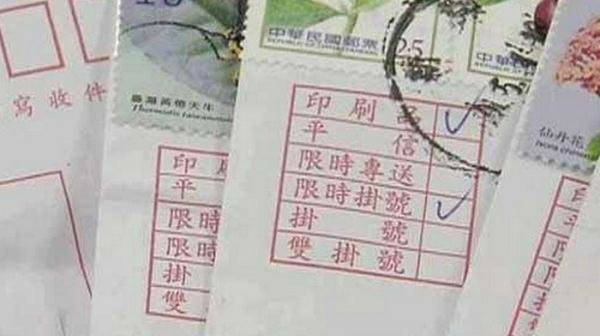 寫收件
臺灣黃條天牛
印刷
平
限時
限時
掛
雙
中華民國郵票
REPUBLIC OF CHINA
25
印刷品
平信
限時專送
限時掛號
掛號
雙掛號
中華民
仙丹花
印
平
限
限
掛
雙